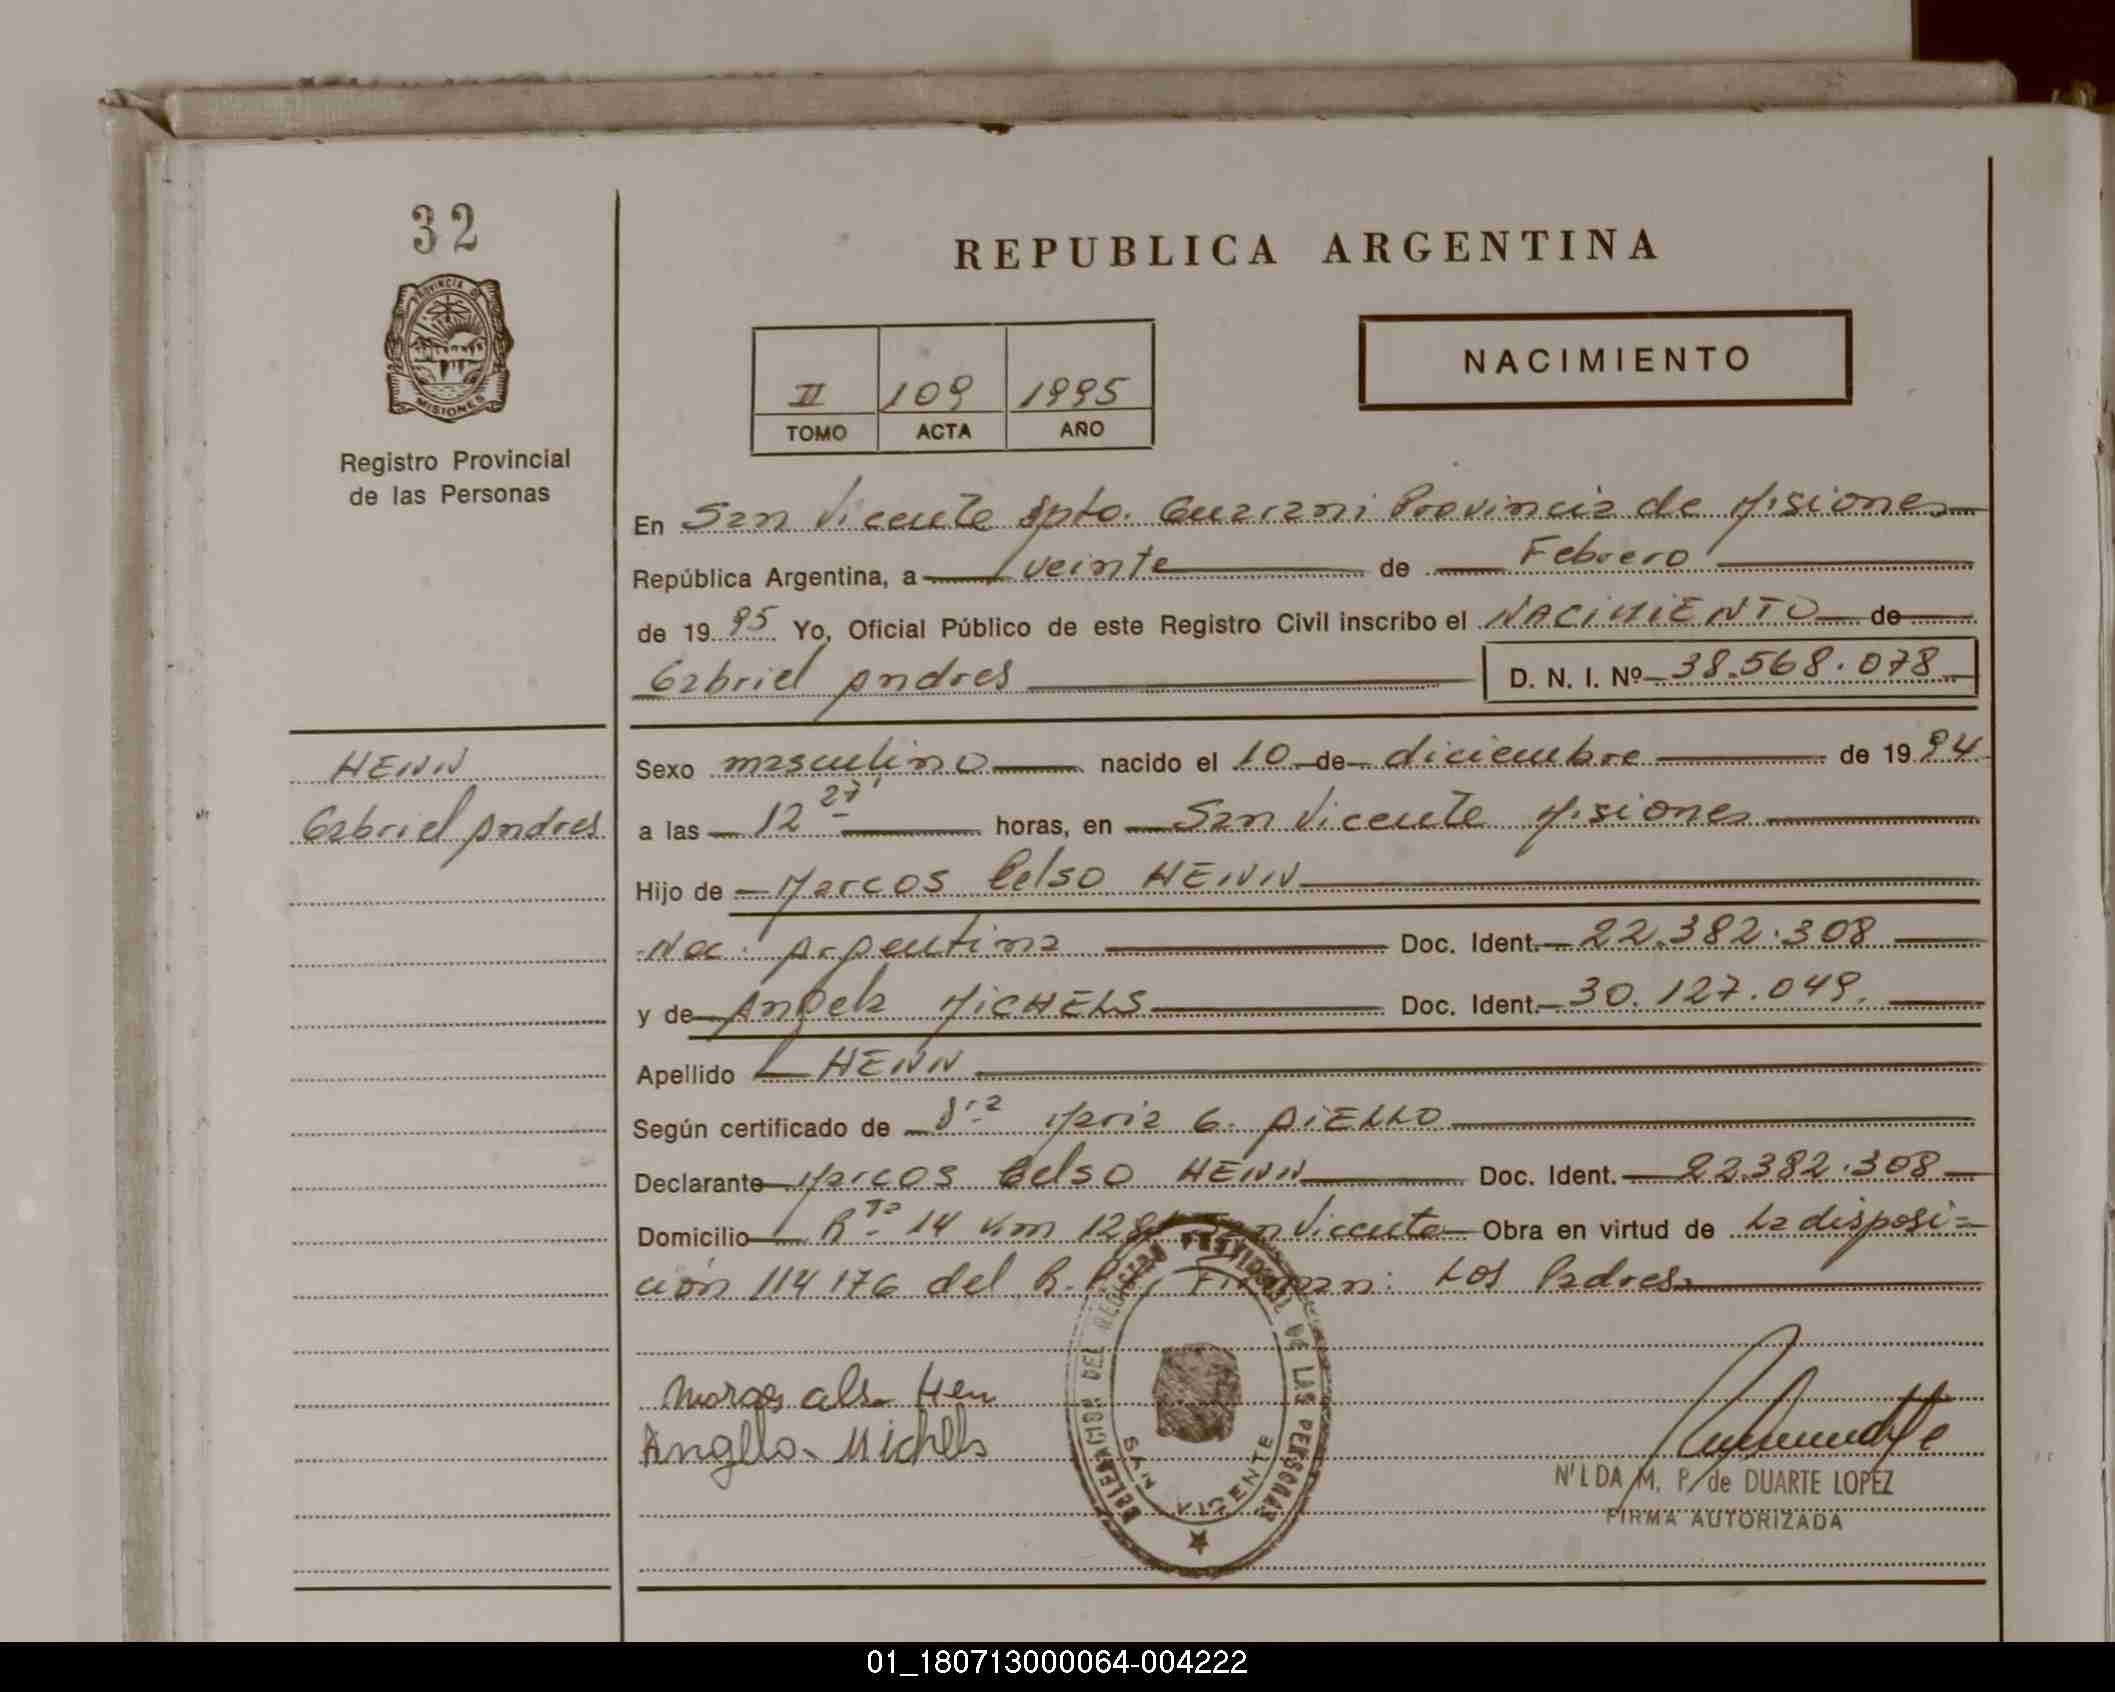 32
PROVINCIA DE
MISIONES
Registro Provincial
de las Personas
REPUBLICA ARGENTINA
II 109 1995
TOMO ACTA AÑO
NACIMIENTO
En San Vicente Dpto. Guarani Provincia de Misiones
República Argentina, a veinte de Febrero
de 1995 Yo, Oficial Público de este Registro Civil inscribo el NACIMIENTO de
Gabriel Andres D. N. I. Nº 38.568.078
HENN
Gabriel Andres
Sexo masculino nacido el 10 de diciembre de 1994
a las 12 27' horas, en San Vicente Misiones
Hijo de Marcos Celso HENN
Nac. Argentina Doc. Ident. 22.382.308
y de Angela MICHELS Doc. Ident. 30.127.049.
Apellido HENN
Según certificado de Dra Maria G. AIELLO
Declarante Marcos Celso HENN Doc. Ident. 22.382.308
Domicilio Rta 14 Km San Vicente Obra en virtud de La disposi=
ción 114176 del Firman: Los Padres
Angela Michels
DELEGACION DEL REGISTRO PROVINCIAL DE LAS PERSONAS
SAN VICENTE
NILDA M. P. de DUARTE LOPEZ
FIRMA AUTORIZADA
01_180713000064-004222